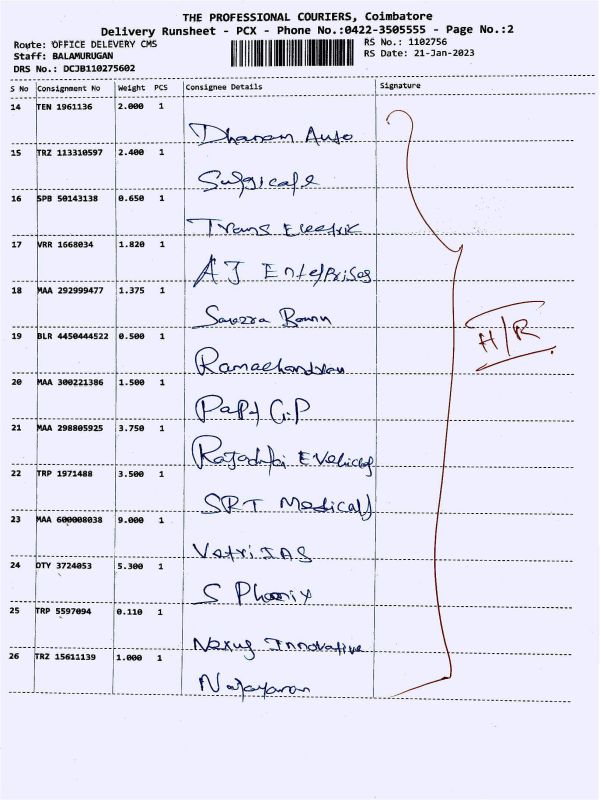 THE PROFESSIONAL COURIERS, Coimbatore
Delivery Runsheet - PCX - Phone No.:0422-3505555 - Page No.:2
Route: OFFICE DELEVERY CMS
RS No.: 1102756
Staff: BALAMURUGAN
RS Date: 21-Jan-2023
DRS No.: DCJB110275602
S No Consignment No Weight PCS Consignee Details Signature
14 TEN 1961136 2.000 1
Dharam Auto
15 TRZ 113310597 2.400 1
Surgicafe
16 SPB 50143138 0.650 1
Trans Electrik
17 VRR 1668034 1.820 1
AJ Enterprises
18 MAA 292999477 1.375 1
19 BLR 4450444522 0.500 1
H/R
Ramachandran
20 MAA 300221386 1.500 1
G.P
21 MAA 298805925 3.750 1
22 TRP 1971488 3.500 1
SRT Medicals
23 MAA 600008038 9.000 1
Vetri IAS
24 OTY 3724053 5.300 1
S Phoenix
25 TRP 5597094 0.110 1
Nexus Innovative
26 TRZ 15611139 1.000 1
Narayanan